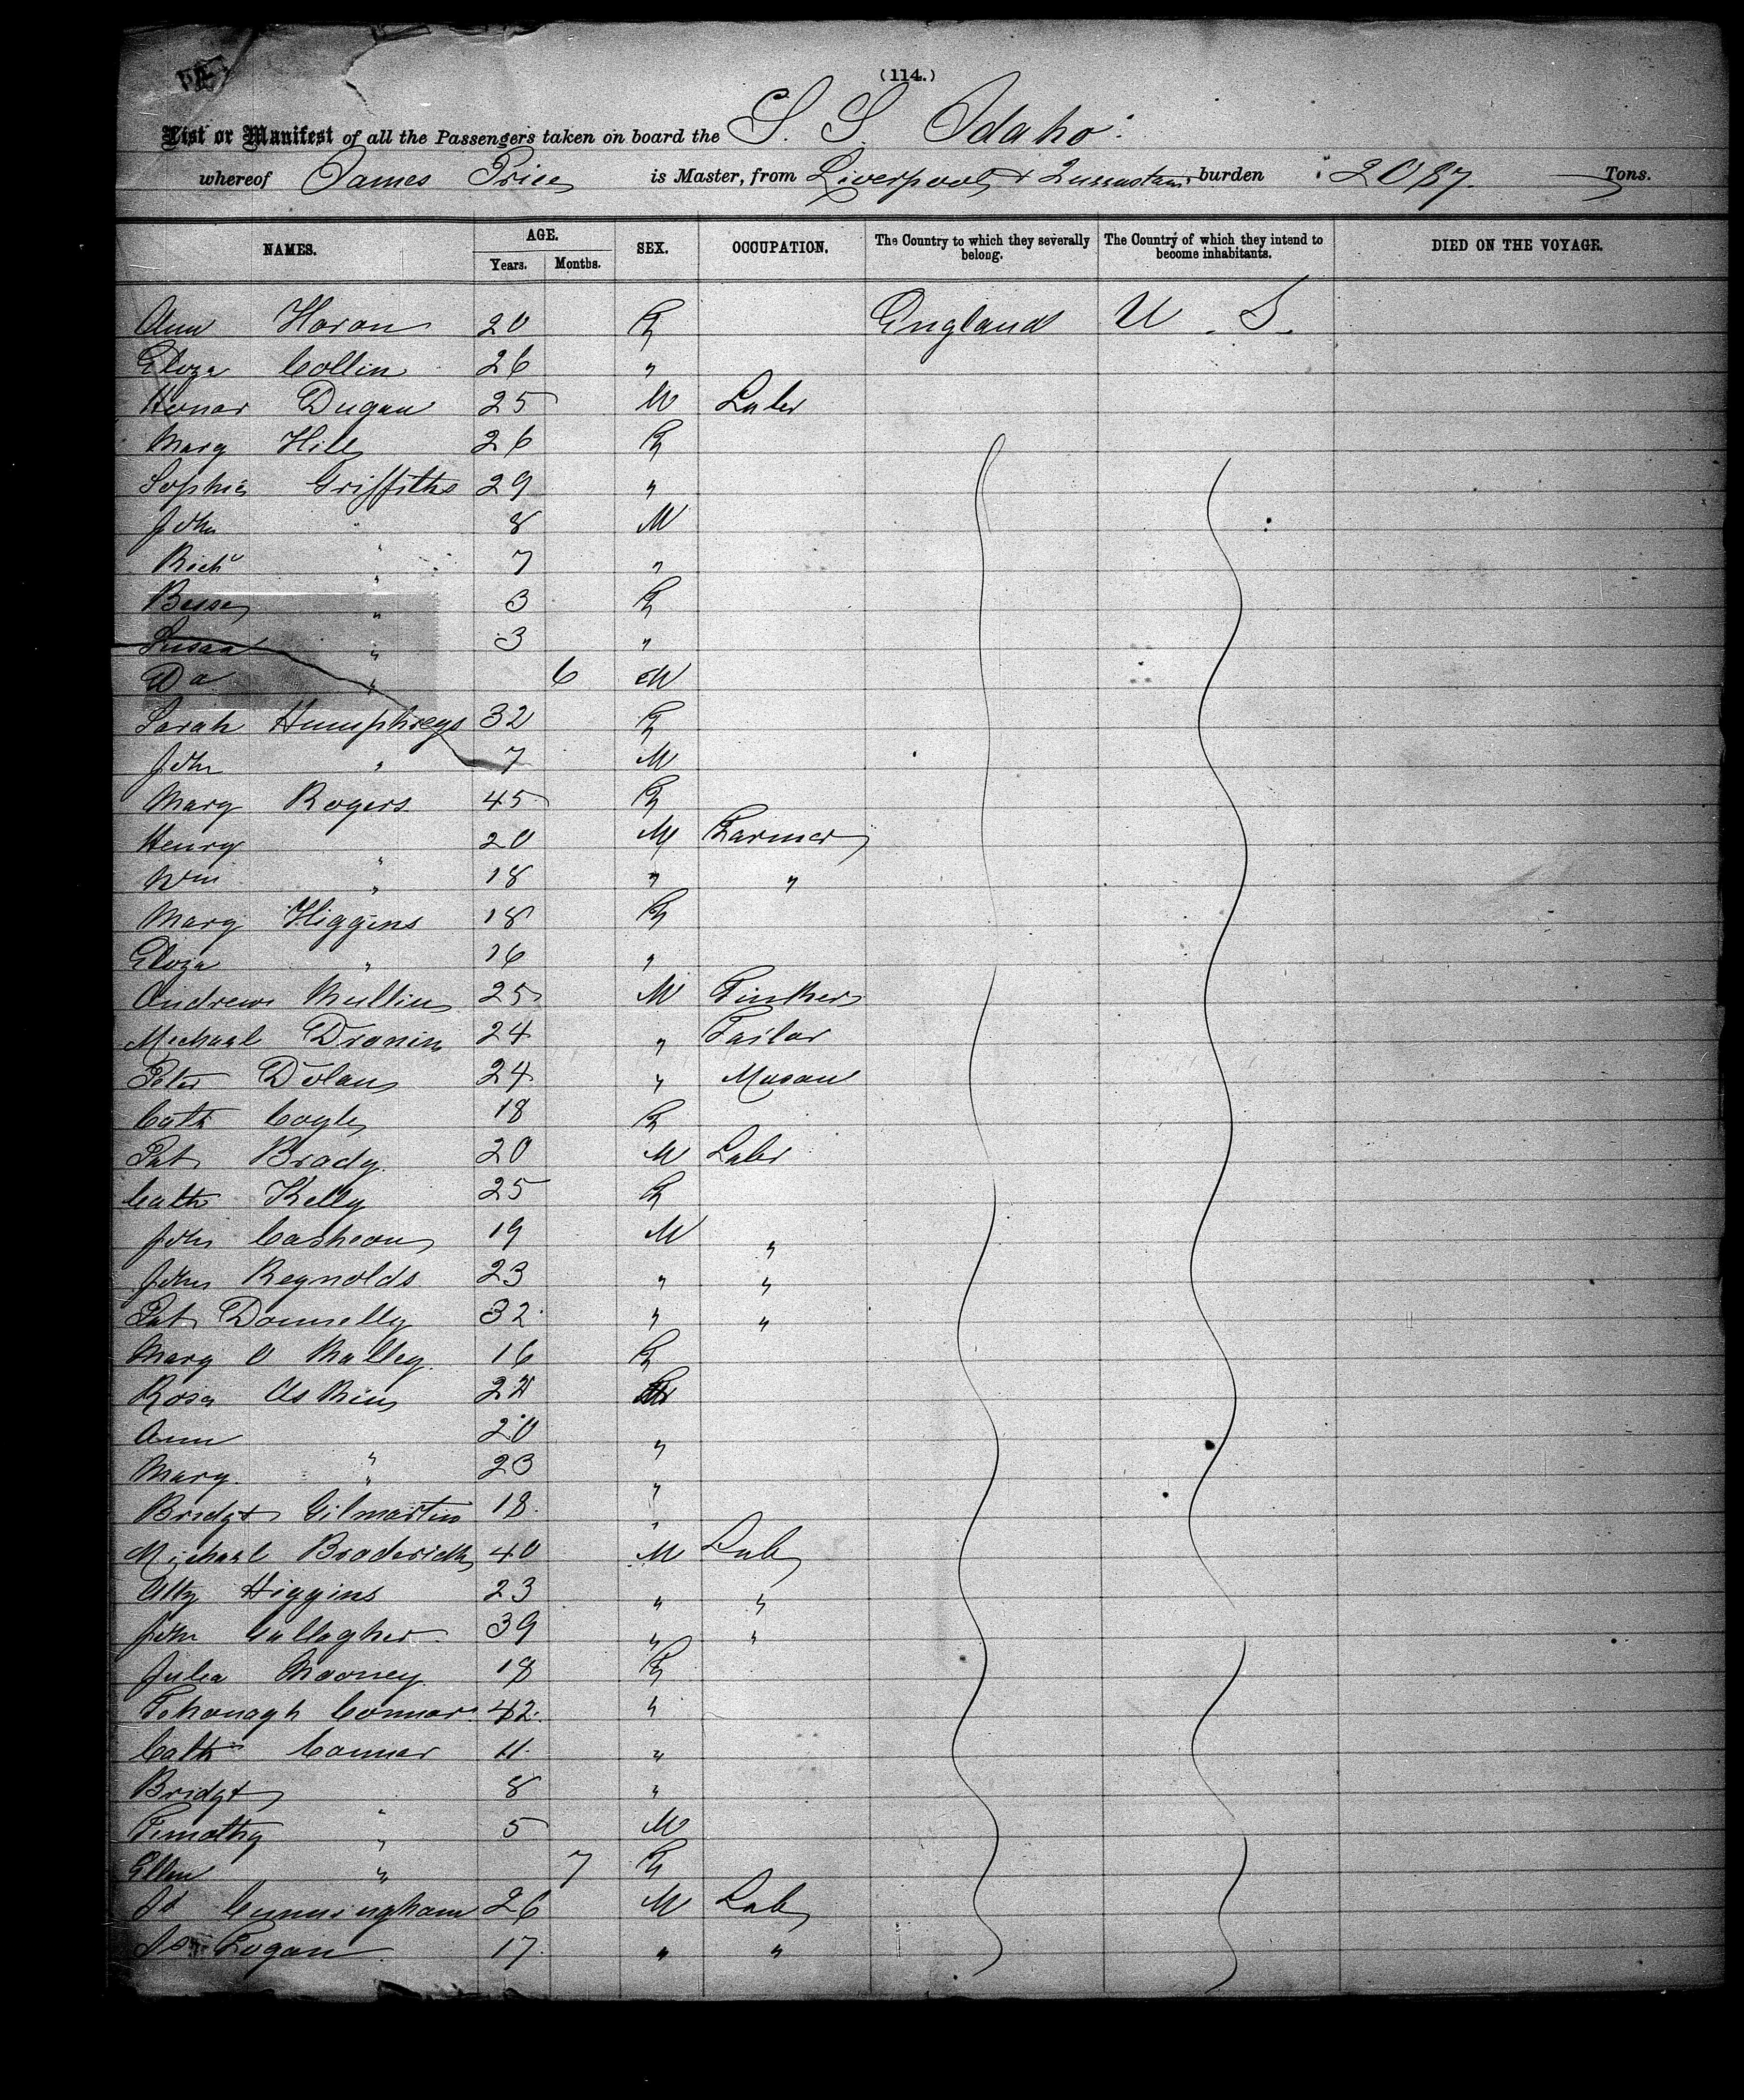 (114.)
List or Manifest of all the Passengers taken on board the S. S. Idaho
whereof James Price is Master, from Liverpool & Queenstown burden 2087 Tons.
NAMES. AGE. Years. Months. SEX. OCCUPATION. The Country to which they severally belong. The Country of which they intend to become inhabitants. DIED ON THE VOYAGE.
Ann Horan 20 F England U. S.
Eliza Collin 26 "
Honor Dugan 25 M Labr
Mary Hill 26 F
Sophia Griffiths 29 "
John " 8 M
Richd " 7 "
Bessey " 3 F
Susan " 3 "
Da " 6 M
Sarah Humphreys 32 F
John " 7 M
Mary Rogers 45 F
Henry " 20 M Farmer
Wm " 18 " "
Mary Higgins 18 F
Eliza " 16 "
Andrew Mullin 25 M Tinker
Michael Dronin 24 " Tailor
Peter Dolan 24 " Mason
Cath Coyle 18 F
Pat Brady 20 M Labr
Cath Kelly 25 F
John Casheon 19 M "
John Reynolds 23 " "
Pat Donnelly 32 " "
Mary O Malley 16 F
Rosa Askin 24
Ann " 20 "
Mary " 23 "
Bridgt Gilmartin 18 "
Michael Broderick 40 M Lab
Atty Higgins 23 " "
John Gallagher 39 " "
Julia Mooney 18 F
Connor 42 "
Cath Connor 11 "
Bridgt " 8 "
Timothy " 5 M
Ellen " 7 F
Cunningham 26 M Lab
Logan 17 " "